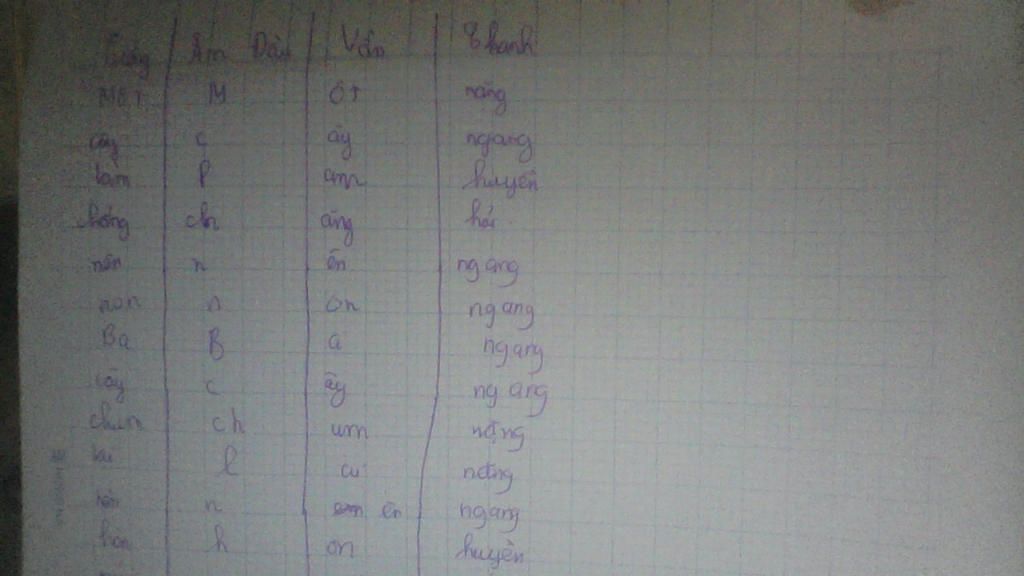 Tiếng Âm Đầu Vần Thanh
Một M ôt nặng
cây c ây ngang
làm l am huyền
chẳng ch ăng hỏi
nên n ên ngang
non n on ngang
Ba B a ngang
cây c ây ngang
chụm ch um nặng
lại l ai nặng
nên n ên ngang
hòn h on huyền